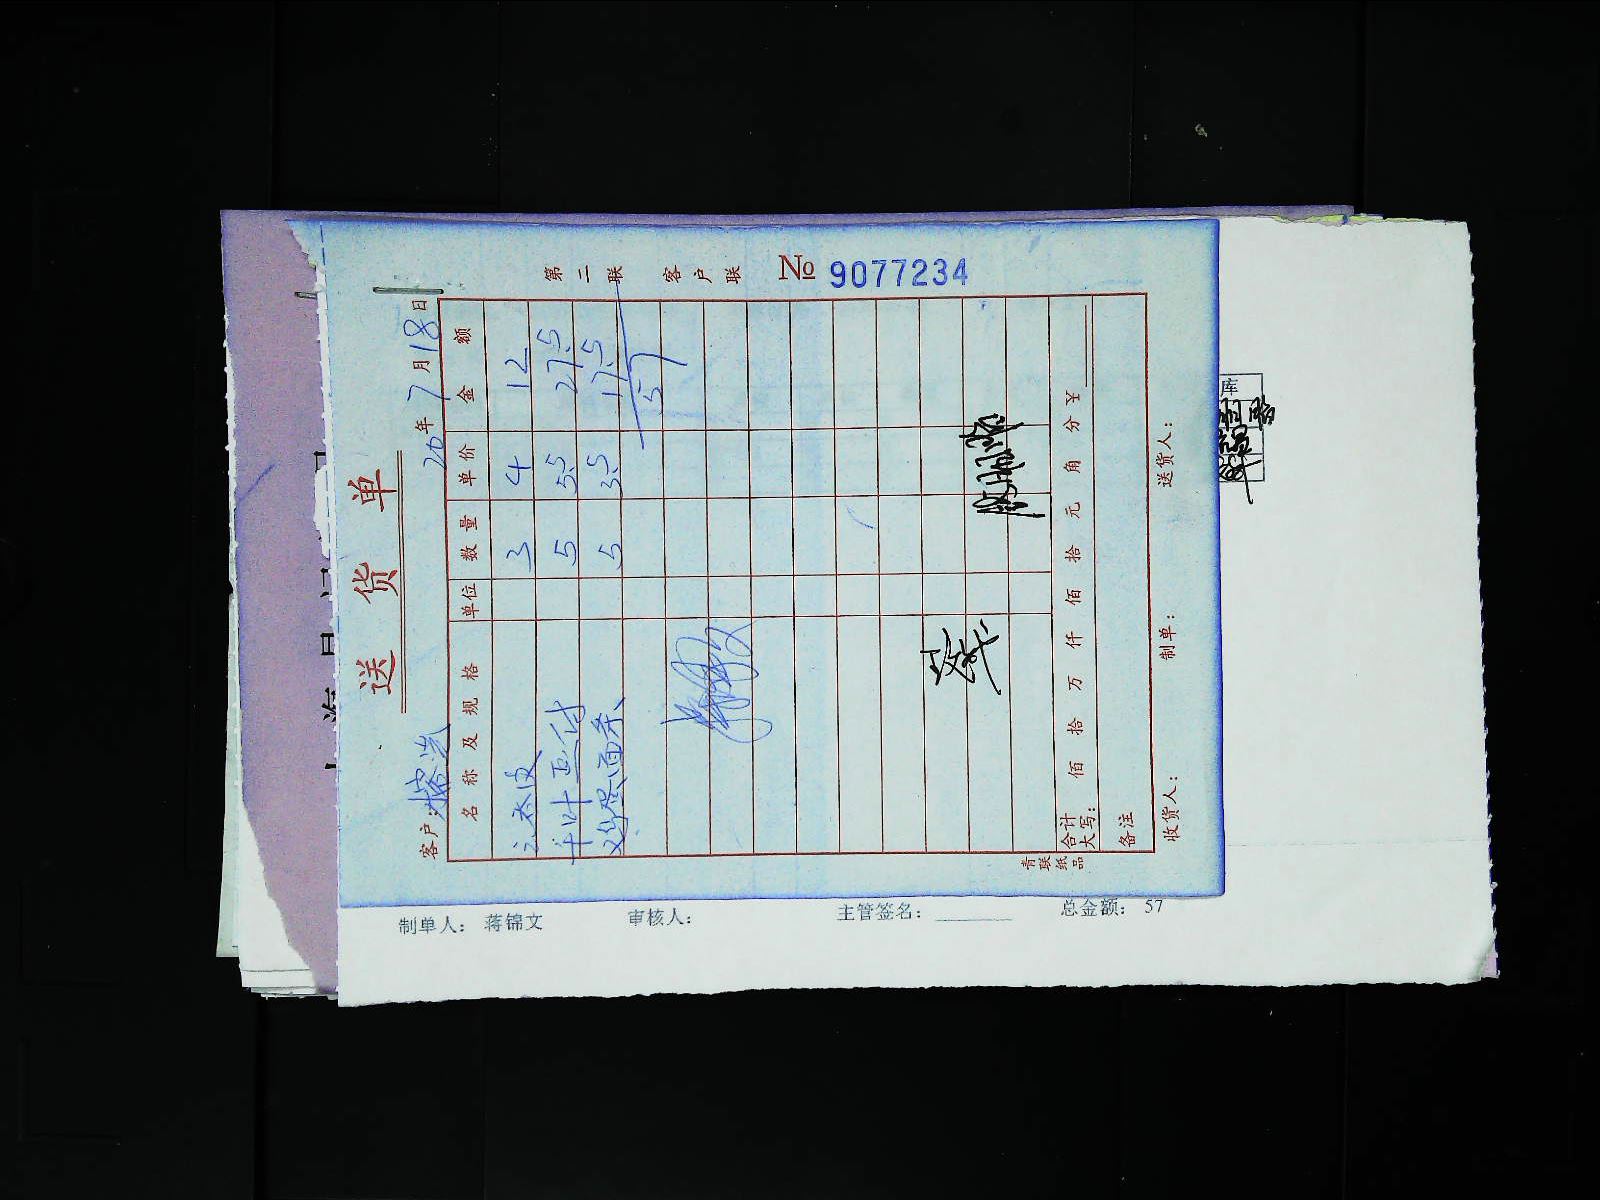 送货单
第二联 客户联 № 9077234
客户: 20年7月18日
名称及规格 单位 数量 单价 金额
3 4 12
千叶豆付 5 5.5 27.5
鸡蛋面条 5 3.5 17.5
57
合计大写: 佰 拾 万 仟 佰 拾 元 角 分 ¥
备注
收货人: 制单: 送货人:
青联纸品
库
制单人: 蒋锦文 审核人: 主管签名: 总金额: 57